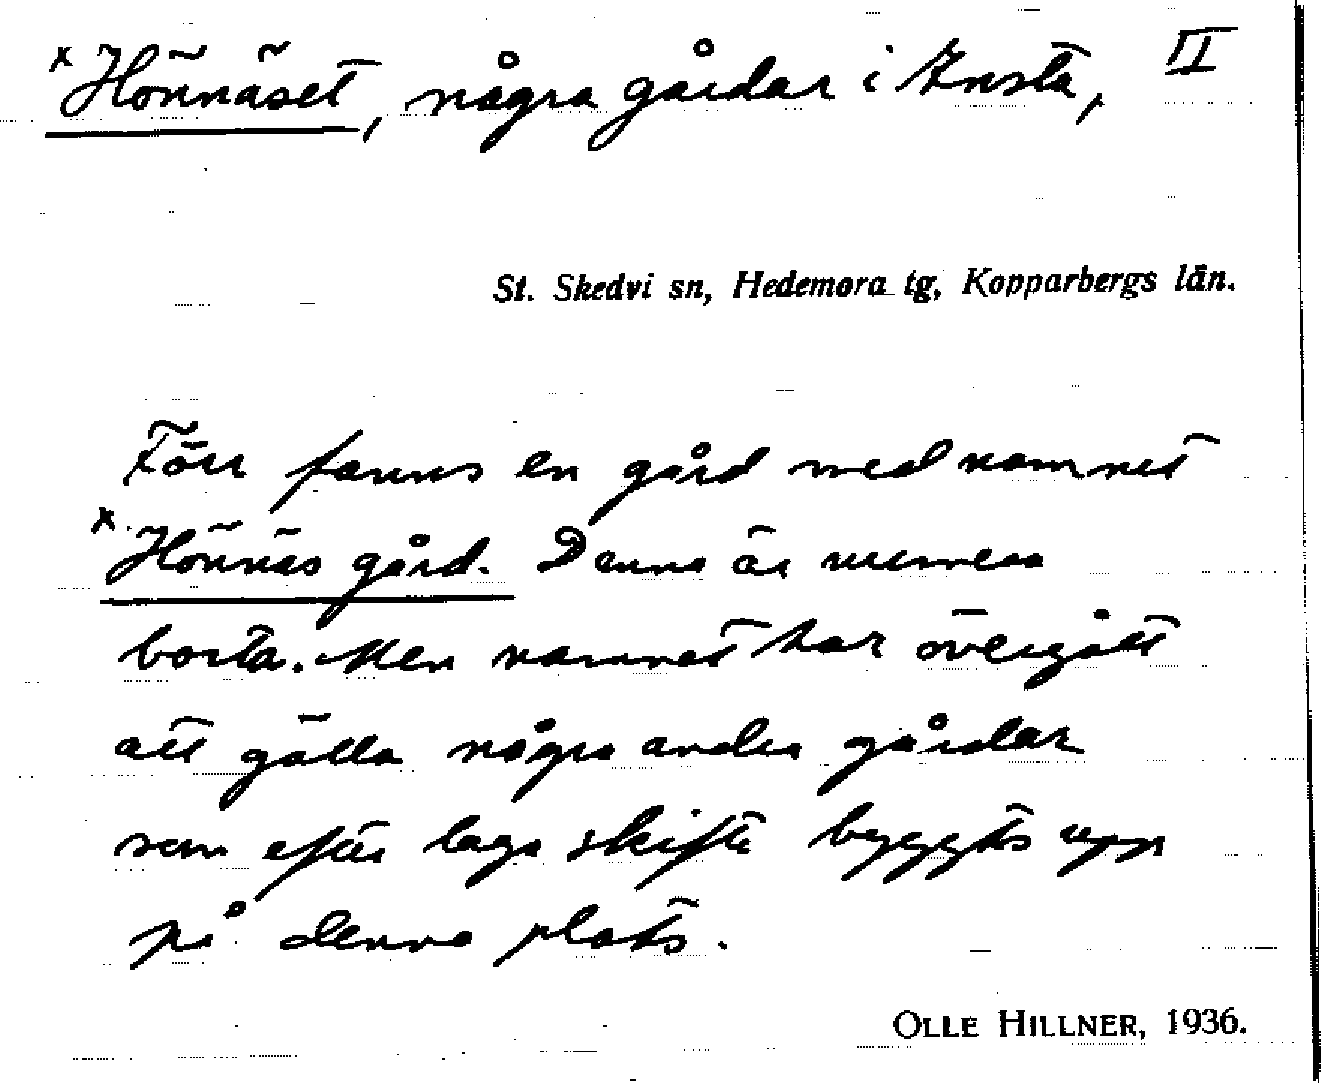 x Hönnäset, några gårdar i Knsta, II
St. Skedvi sn, Hedemora tg, Kopparbergs län.
Förr fanns en gård med namnet
x Hönnäs gård. Denna är numera
borta. Men namnet har övergått
att gälla några andra gårdar
som efter laga skifte byggts upp
på denna plats.
OLLE HILLNER, 1936.